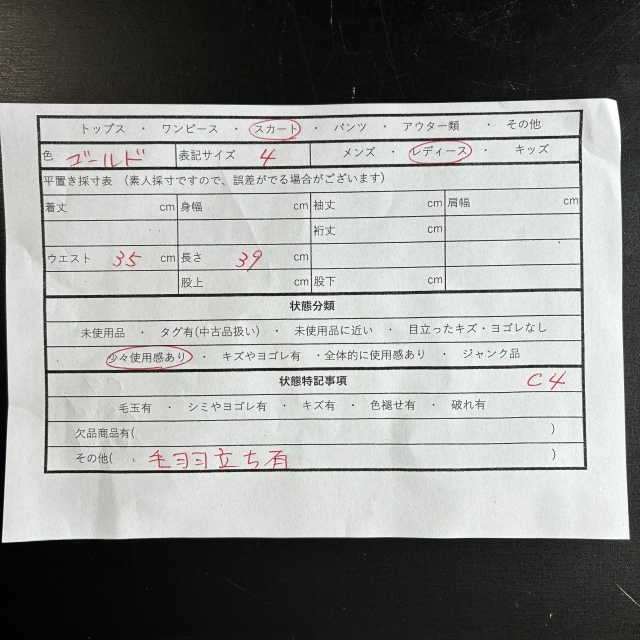 トップス ・ ワンピース ・ スカート ・ パンツ ・ アウター類 ・ その他
色 ゴールド 表記サイズ 4 メンズ ・ レディース ・ キッズ
平置き採寸表 （素人採寸ですので、誤差がでる場合がございます）
着丈 cm 身幅 cm 袖丈 cm 肩幅 cm
裄丈 cm
ウエスト 35 cm 長さ 39 cm
股上 cm 股下 cm
状態分類
未使用品 ・ タグ有(中古品扱い) ・ 未使用品に近い ・ 目立ったキズ・ヨゴレなし
・ 少々使用感あり ・ キズやヨゴレ有 ・全体的に使用感あり ・ ジャンク品
状態特記事項 C4
毛玉有 ・ シミやヨゴレ有 ・ キズ有 ・ 色褪せ有 ・ 破れ有
欠品商品有( )
その他( ・毛ヨヨ立ち有 )